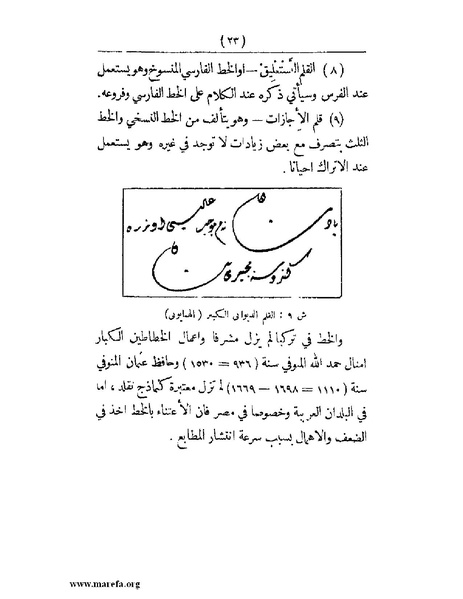 ( ٢٣ )
( ٨ ) القلم النَّسْتَعْلِيْق — او الخط الفارسي المنسوخ وهو يستعمل
عند الفرس وسيأتي ذكره عند الكلام على الخط الفارسي وفروعه.
( ٩ ) قلم الإِجازات — وهو يتألف من الخط النسخي والخط
الثلث بتصرف مع بعض زيادات لا توجد في غيره وهو يستعمل
عند الاتراك احيانا .
ش ٩ : القلم الديواني الكبير ( الهمايوني )
والخط في تركيا لم يزل مشرفا واعمال الخطاطين الكبار
امثال حمد الله المتوفي سنة ( ٩٣٦ = ١٥٣٠ ) وحافظ عثمان المتوفي
سنة ( ١١١٠ = ١٦٩٨ — ١٦٦٩ ) لم تزل معتبرة كنماذج تقلد ، اما
في البلدان العربية وخصوصا في مصر فان الأعتناء بالخط اخذ في
الضعف والاهمال بسبب سرعة انتشار المطابع .
www.marefa.org